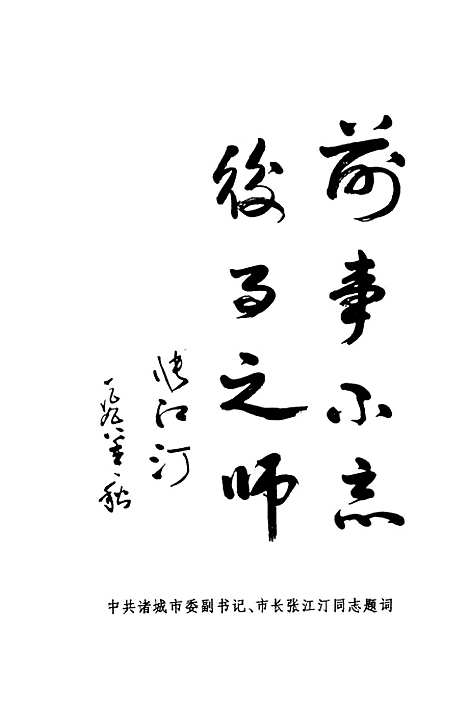 前事不忘
後事之师
张江汀
一九九八年秋
中共诸城市委副书记、市长张江汀同志题词